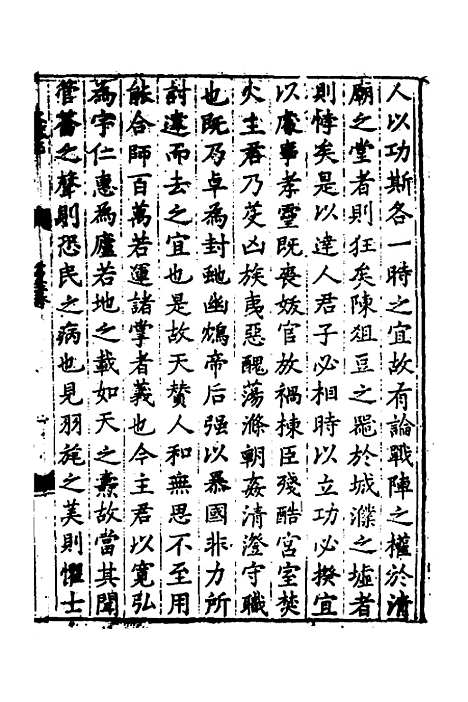 人以功斯各一時之宜故有論戰陣之權於清
廟之堂者則狂矣陳俎豆之噐於城濮之墟者
則悖矣是以達人君子必相時以立功必揆宜
以處事孝靈既喪妖官放禍棟臣殘酷宮室焚
火主君乃芟凶族夷惡醜蕩滌朝姦清澄守職
也既乃卓為封虵幽鴆帝后强以暴國非力所
討違而去之宜也是故天賛人和無思不至用
能合師百萬若運諸掌者義也今主君以寛弘
為宇仁惠為廬若地之載如天之燾故當其聞
管籥之聲則恐民之病也見羽旄之美則懼士